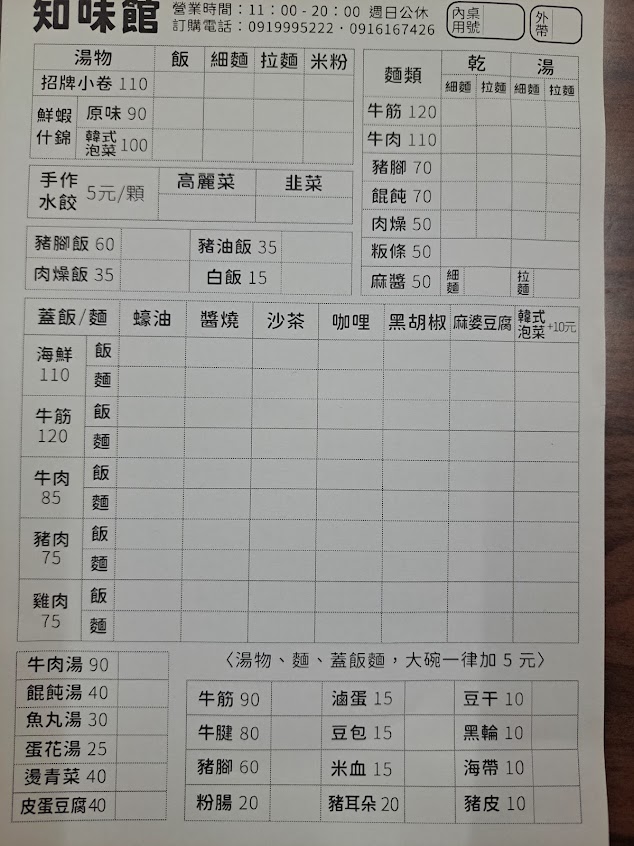 知味館
營業時間：11：00 - 20：00 週日公休
訂購電話：0919995222・0916167426
內用 桌號
外帶
湯物 飯 細麵 拉麵 米粉
招牌小卷 110
鮮蝦什錦 原味 90
韓式泡菜 100
手作水餃 5元/顆 高麗菜 韭菜
豬腳飯 60 豬油飯 35
肉燥飯 35 白飯 15
麵類 乾 湯
細麵 拉麵 細麵 拉麵
牛筋 120
牛肉 110
豬腳 70
餛飩 70
肉燥 50
粄條 50
麻醬 50 細麵 拉麵
蓋飯/麵 蠔油 醬燒 沙茶 咖哩 黑胡椒 麻婆豆腐 韓式泡菜+10元
海鮮 110 飯
麵
牛筋 120 飯
麵
牛肉 85 飯
麵
豬肉 75 飯
麵
雞肉 75 飯
麵
牛肉湯 90
餛飩湯 40
魚丸湯 30
蛋花湯 25
燙青菜 40
皮蛋豆腐40
〈湯物、麵、蓋飯麵，大碗一律加 5 元〉
牛筋 90 滷蛋 15 豆干 10
牛腱 80 豆包 15 黑輪 10
豬腳 60 米血 15 海帶 10
粉腸 20 豬耳朵 20 豬皮 10